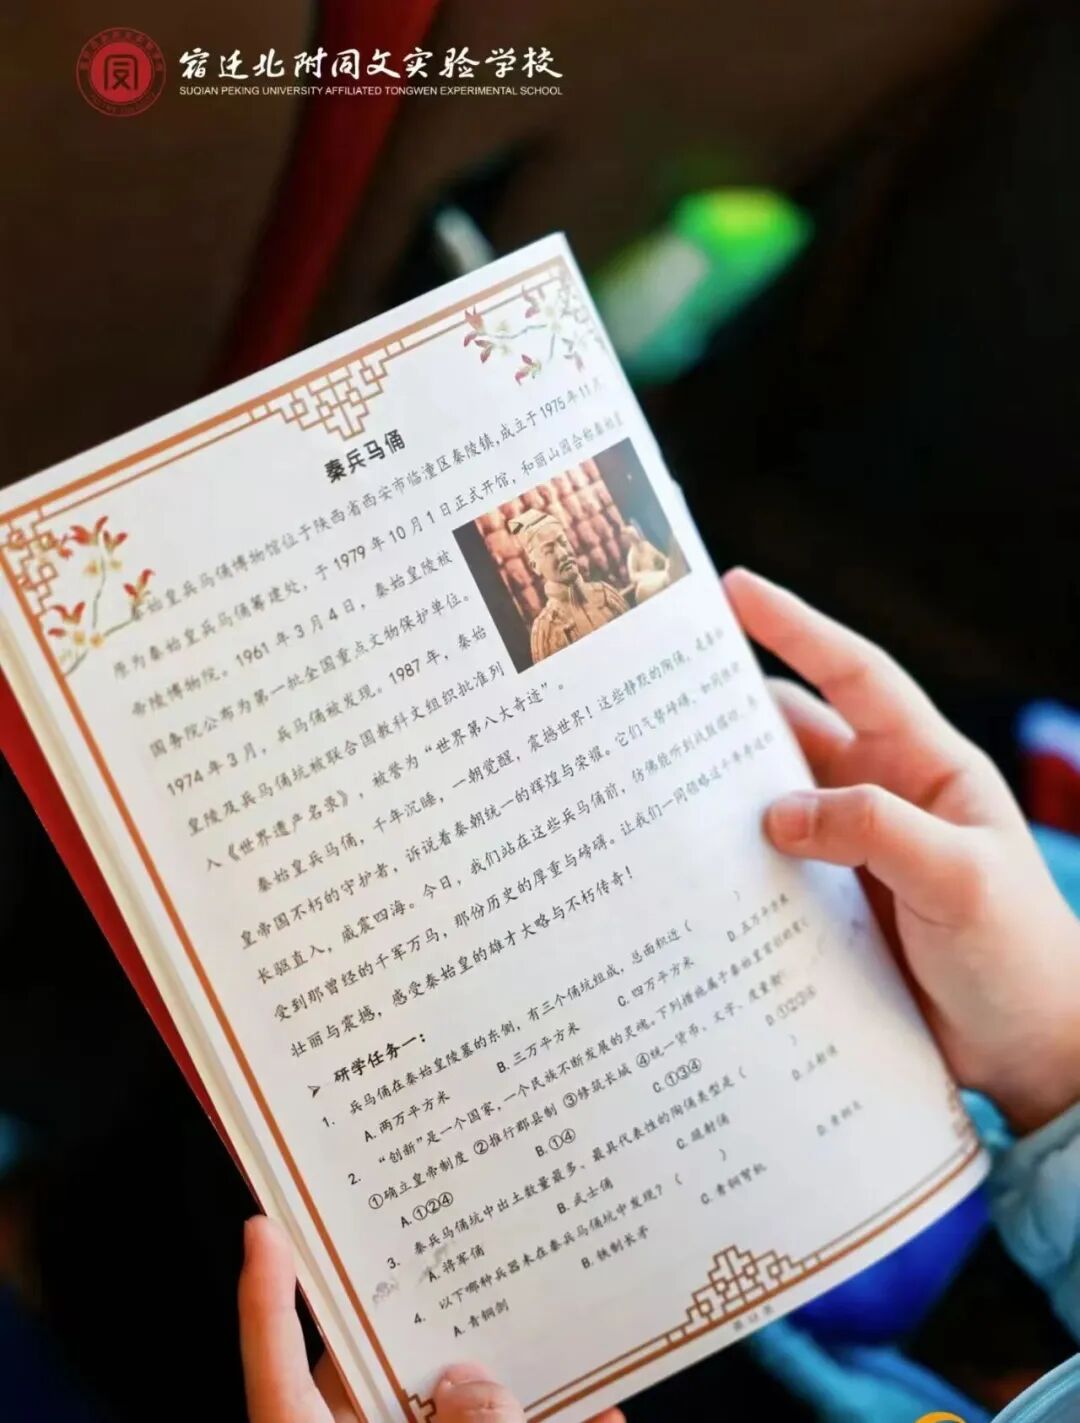 宿迁北附同文实验学校
SUQIAN PEKING UNIVERSITY AFFILIATED TONGWEN EXPERIMENTAL SCHOOL
秦兵马俑
始皇兵马俑博物馆位于陕西省西安市临潼区秦陵镇，成立于1975年11月
原为秦始皇兵马俑筹建处，于1979年10月1日正式开馆，和丽山园合称秦始皇
帝陵博物院。1961年3月4日，秦始皇陵被
国务院公布为第一批全国重点文物保护单位。
1974年3月，兵马俑被发现。1987年，秦始
皇陵及兵马俑坑被联合国教科文组织批准列
入《世界遗产名录》，被誉为“世界第八大奇迹”。
秦始皇兵马俑，千年沉睡，一朝觉醒，震撼世界！这些静默的陶俑，是秦始
皇帝国不朽的守护者，诉说着秦朝统一的辉煌与荣耀。它们气势磅礴，如同
长驱直入，威震四海。今日，我们站在这些兵马俑前，仿佛能听到战鼓
受到那曾经的千军万马，那份历史的厚重与磅礴。让我们一同领略这千年奇迹的
壮丽与震撼，感受秦始皇的雄才大略与不朽传奇！
➢ 研学任务一：
1. 兵马俑在秦始皇陵墓的东侧，有三个俑坑组成，总面积近（ ）
A.两万平方米 B.三万平方米 C.四万平方米 D.五万平方米
2. “创新”是一个国家，一个民族不断发展的灵魂。下列措施属于秦始皇首创的有（
①确立皇帝制度 ②推行郡县制 ③修筑长城 ④统一货币、文字、度量衡
A.①②④ B.①④ C.①③④ D.①②③④
3. 秦兵马俑坑中出土数量最多、最具代表性的陶俑类型是（ ）
A.将军俑 B.武士俑 C.跪射俑 D.立射俑
4. 以下哪种兵器未在秦兵马俑坑中发现？（ ）
A.青铜剑 B.铁制长矛 C.青铜弩机 D.青铜戈